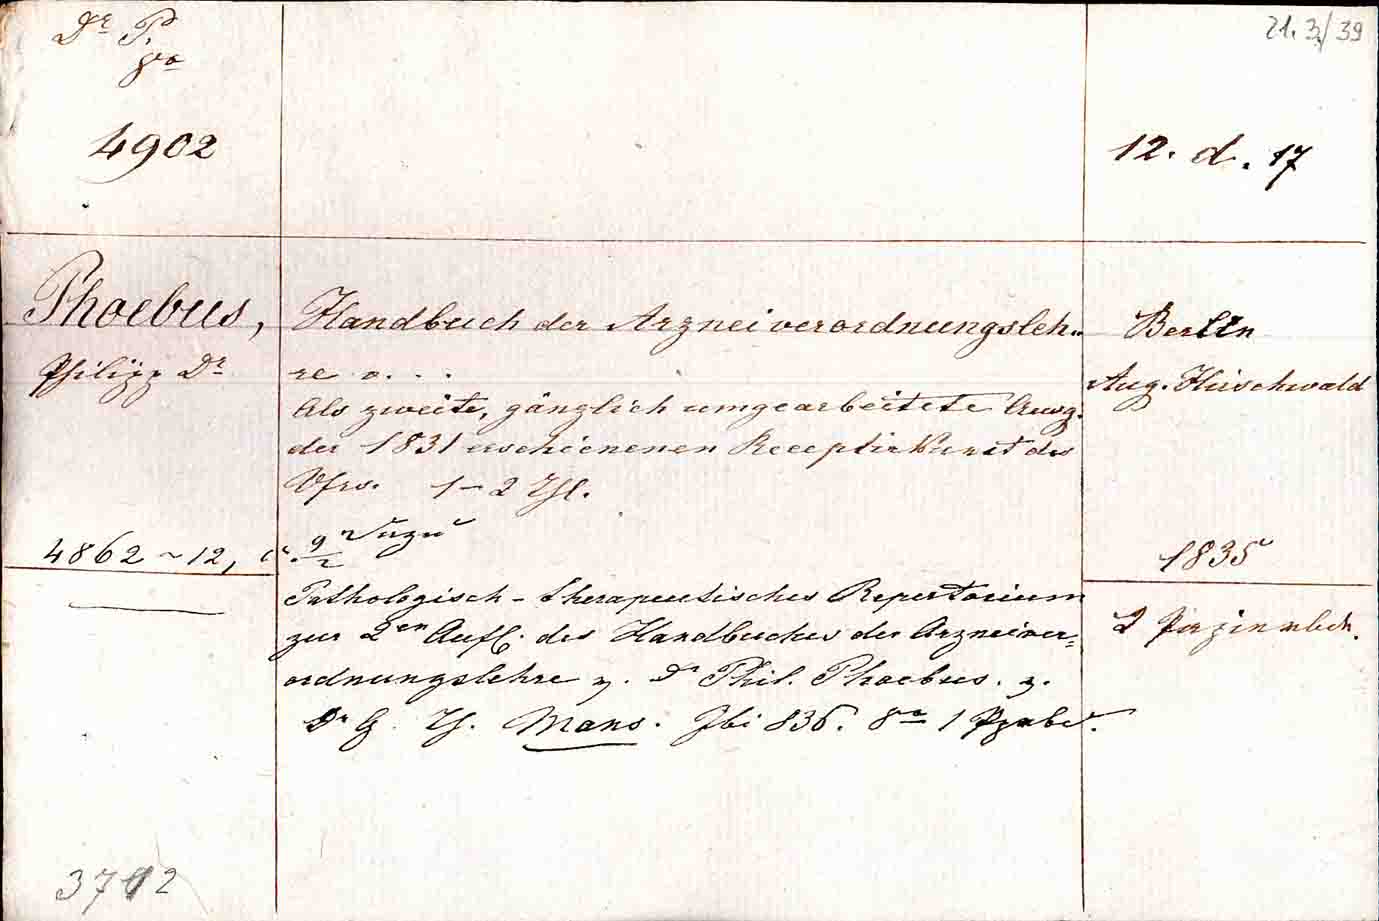 Dr P.
8vo
4902
21. 3./39
12. d. 17
Phoebus,
Philipp Dr
4862 ~ 12,
3712
Handbuch der Arzneiverordnungsleh-
re . . .
Als zweite, gänzlich umgearbeitete Ausg.
der 1831 erschienenen Receptirkunst des
Vfrs. 1-2 Thl.
9/2
Pathologisch-therapeutisches Repertorium
zur 2en Aufl. des Handbuches der Arzneiver-
ordnungslehre v. Dr Phil. Phoebus. v.
Dr G. Th. Mans. Ibi 836. 8o 1
Berlin
Aug. Hirschwald
1835
2